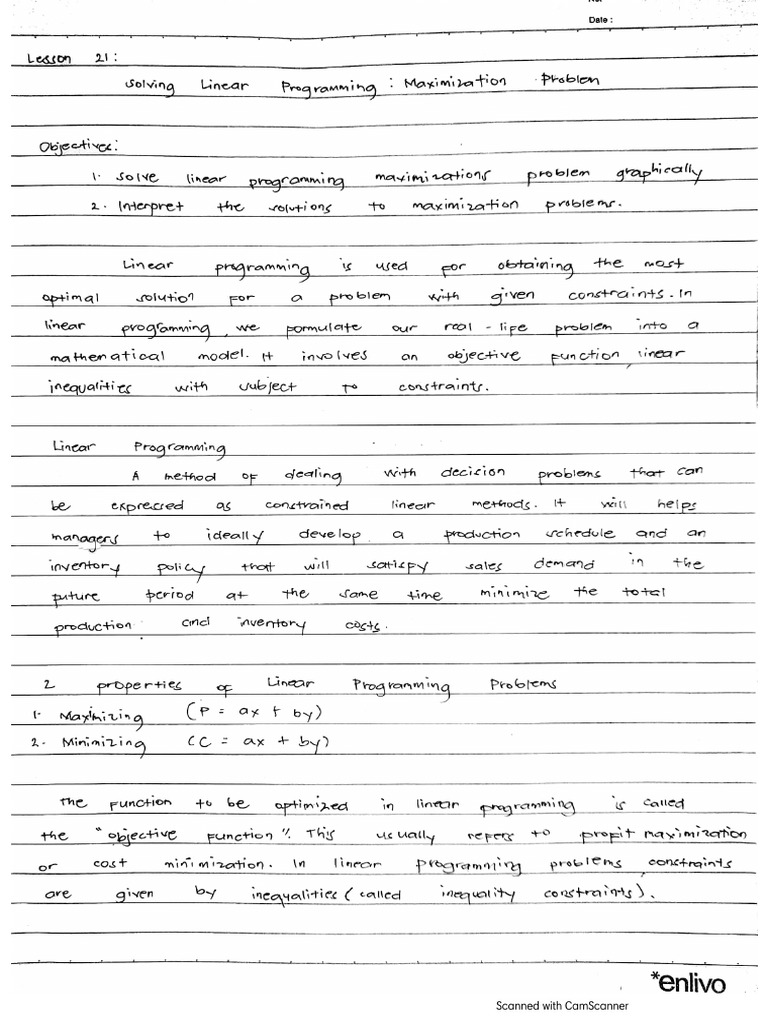 No:
Date :
Lesson 21:
Solving Linear Programming : Maximization Problem
Objectives:
1. Solve linear programming maximizations problem graphically
2. Interpret the solutions to maximization problems.
Linear programming is used for obtaining the most
optimal solution for a problem with given constraints. In
linear programming, we formulate our real-life problem into a
mathematical model. It involves an objective function, linear
inequalities with subject to constraints.
Linear Programming
A method of dealing with decision problems that can
be expressed as constrained linear methods. It will helps
managers to ideally develop a production schedule and an
inventory policy that will satisfy sales demand in the
future period at the same time minimize the total
production and inventory costs.
2 properties of Linear Programming Problems
1. Maximizing (P = ax + by)
2. Minimizing (C = ax + by)
The function to be optimized in linear programming is called
the "objective function". This usually refers to profit maximization
or cost minimization. In linear programming problems, constraints
are given by inequalities (called inequality constraints).
*enlivo
Scanned with CamScanner